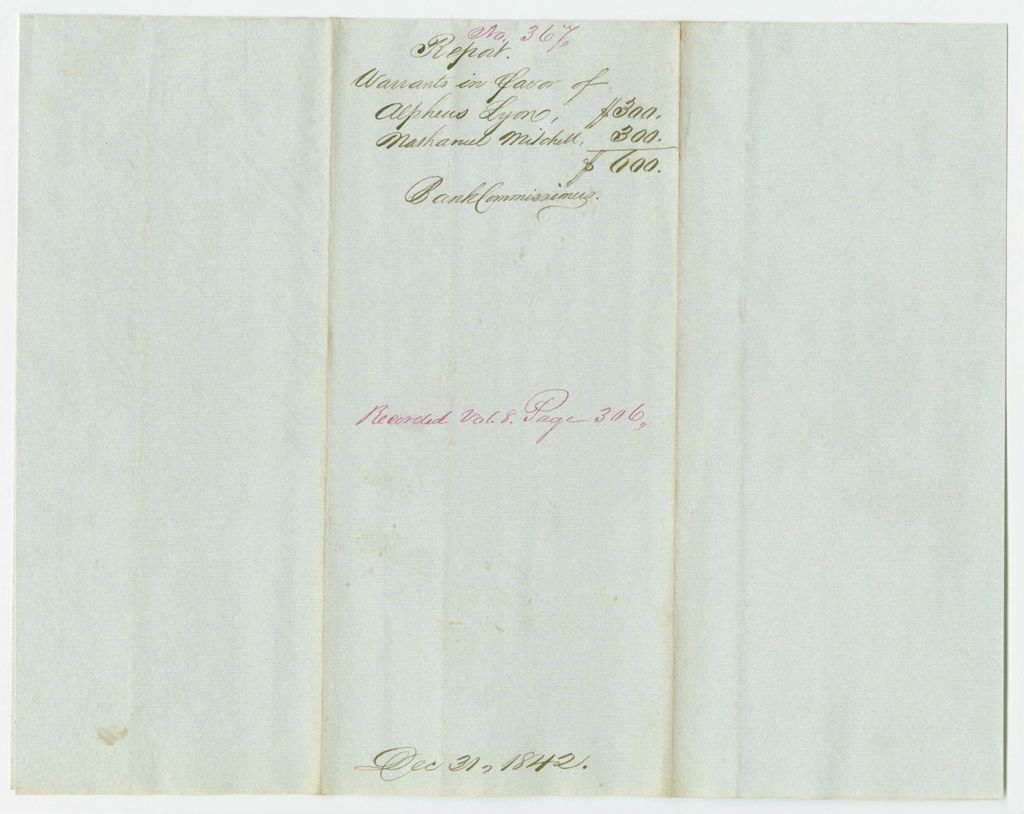 No. 367,
Report.
Warrants in favor of
Alpheus Lyon, $300.
Nathaniel Mitchell, " 300.
$ 600.
Bank Commissioners.
Recorded Vol. 8. Page 306,
Dec 31, 1842.